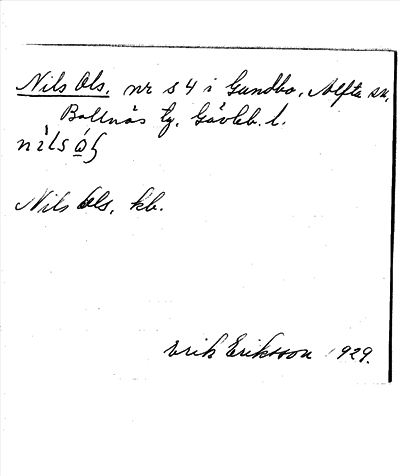 Nils Ols, nr s 4 i Gundbo, Alfta sn,
Bollnäs tg, Gävleb. l.
nilsóʃ
Nils Ols, kb.
Erik Eriksson 1929.